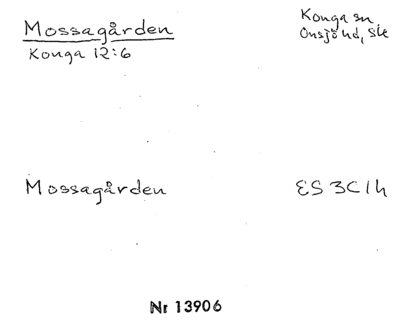 Mossagården
Konga 12:6
Konga sn,
Onsjö hd, Skå
Mossagården
ES 3C1h
Nr 13906